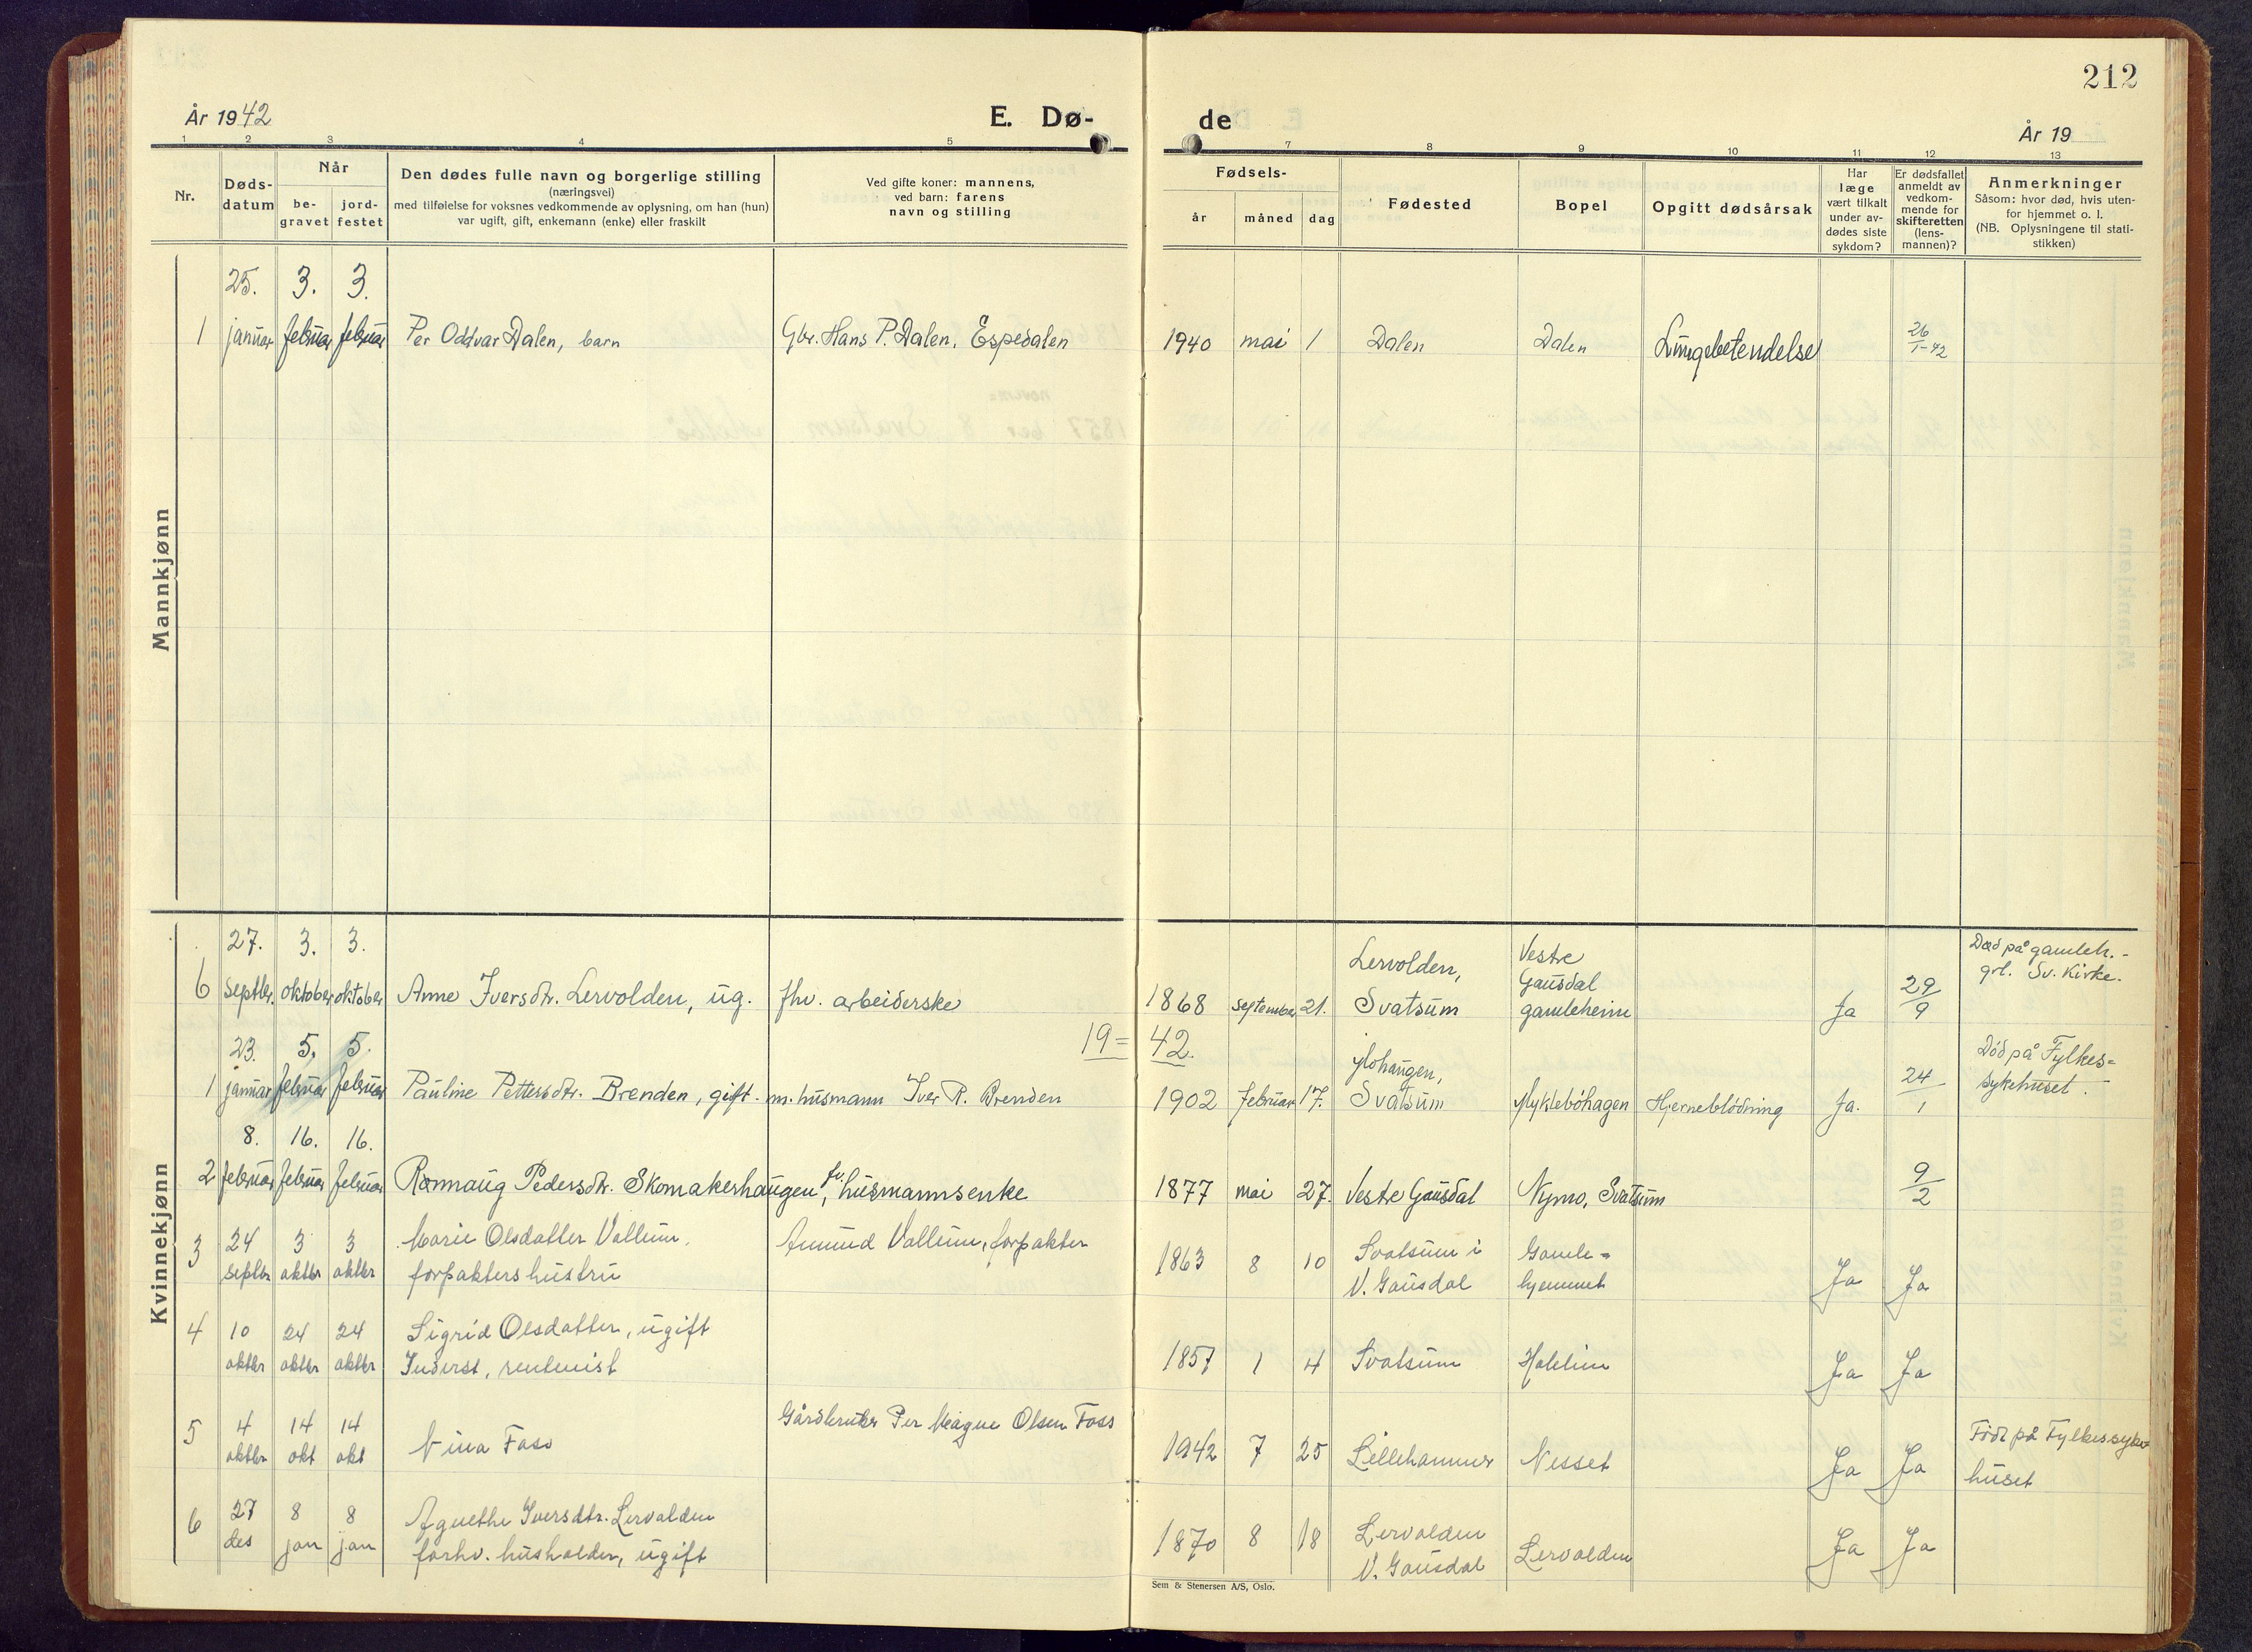 212
År 1942
E. Dø-
de
År 19
1 2 3 4 5 7 8 9 10 11 12 13
Nr.
Døds-
datum
Når
be-
gravet
jord-
festet
Den dødes fulle navn og borgerlige stilling
(næringsvei)
med tilføielse for voksnes vedkommende av oplysning, om han (hun)
var ugift, gift, enkemann (enke) eller fraskilt
Ved gifte koner: mannens,
ved barn: farens
navn og stilling
Fødsels-
år måned dag
Fødested
Bopel
Opgitt dødsårsak
Har
læge
vært tilkalt
under av-
dødes siste
sykdom?
Er dødsfallet
anmeldt av
vedkom-
mende for
skifteretten
(lens-
mannen)?
Anmerkninger
Såsom: hvor død, hvis uten-
for hjemmet o. l.
(NB. Oplysningene til stati-
stikken)
Mannkjønn
25. 3. 3.
1 januar februar februar Per Oddvar Dalen, barn Gbr. Hans P. Dalen, Espedalen 1940 mai 1 Dalen Dalen Lungebetendelse 26/1-42
Kvinnekjønn
27. 3. 3. Lervolden, Vestre Død på gamleh. -
Gausdal grl. Sv. Kirke.
6 septbr. oktober oktober Anne Iversdtr. Lervolden, ug. fhv. arbeiderske 1868 september 21. Svatsum gamleheim Ja 29/9
19= 42.
23. 5. 5. Mohaugen, Død på Fylkes=
1 januar februar februar Pauline Pettersdtr. Brenden, gift. m. husmann Iver R. Brenden 1902 februar 17. Svatsum Myklebøhagen Hjerneblødning Ja. 24/1 sykehuset.
8. 16. 16.
2 februar februar februar Rønnaug Pedersdtr. Skomakerhaugen, fv. husmannsenke 1877 mai 27. Vestre Gausdal Nymo, Svatsum 9/2
3 24 3 3 Marie Olsdatter Vallum, Amund Vallum, forpakter 1863 8 10 Svatsum i Gamle=
septbr oktbr oktbr forpakters hustru V. Gausdal hjemmet Ja Ja
4 10 24 24 Sigrid Olsdatter, ugift
oktbr oktbr oktbr Inderst, rentenist 1857 1 4 Svatsum Ja Ja
5 4 14 14 Gårdbruker Per Magne Olsen Foss
oktbr okt okt Nina Foss 1942 7 25 Lillehammer Nesset Ja Ja Født på Fylkessyke-
huset
6 27 8 8 Agnethe Iversdtr. Lervolden 1870 8 18 Lervolden
des jan jan forhv. husholder, ugift V. Gausdal Lervolden Ja Ja
Sem & Stenersen A/S, Oslo.